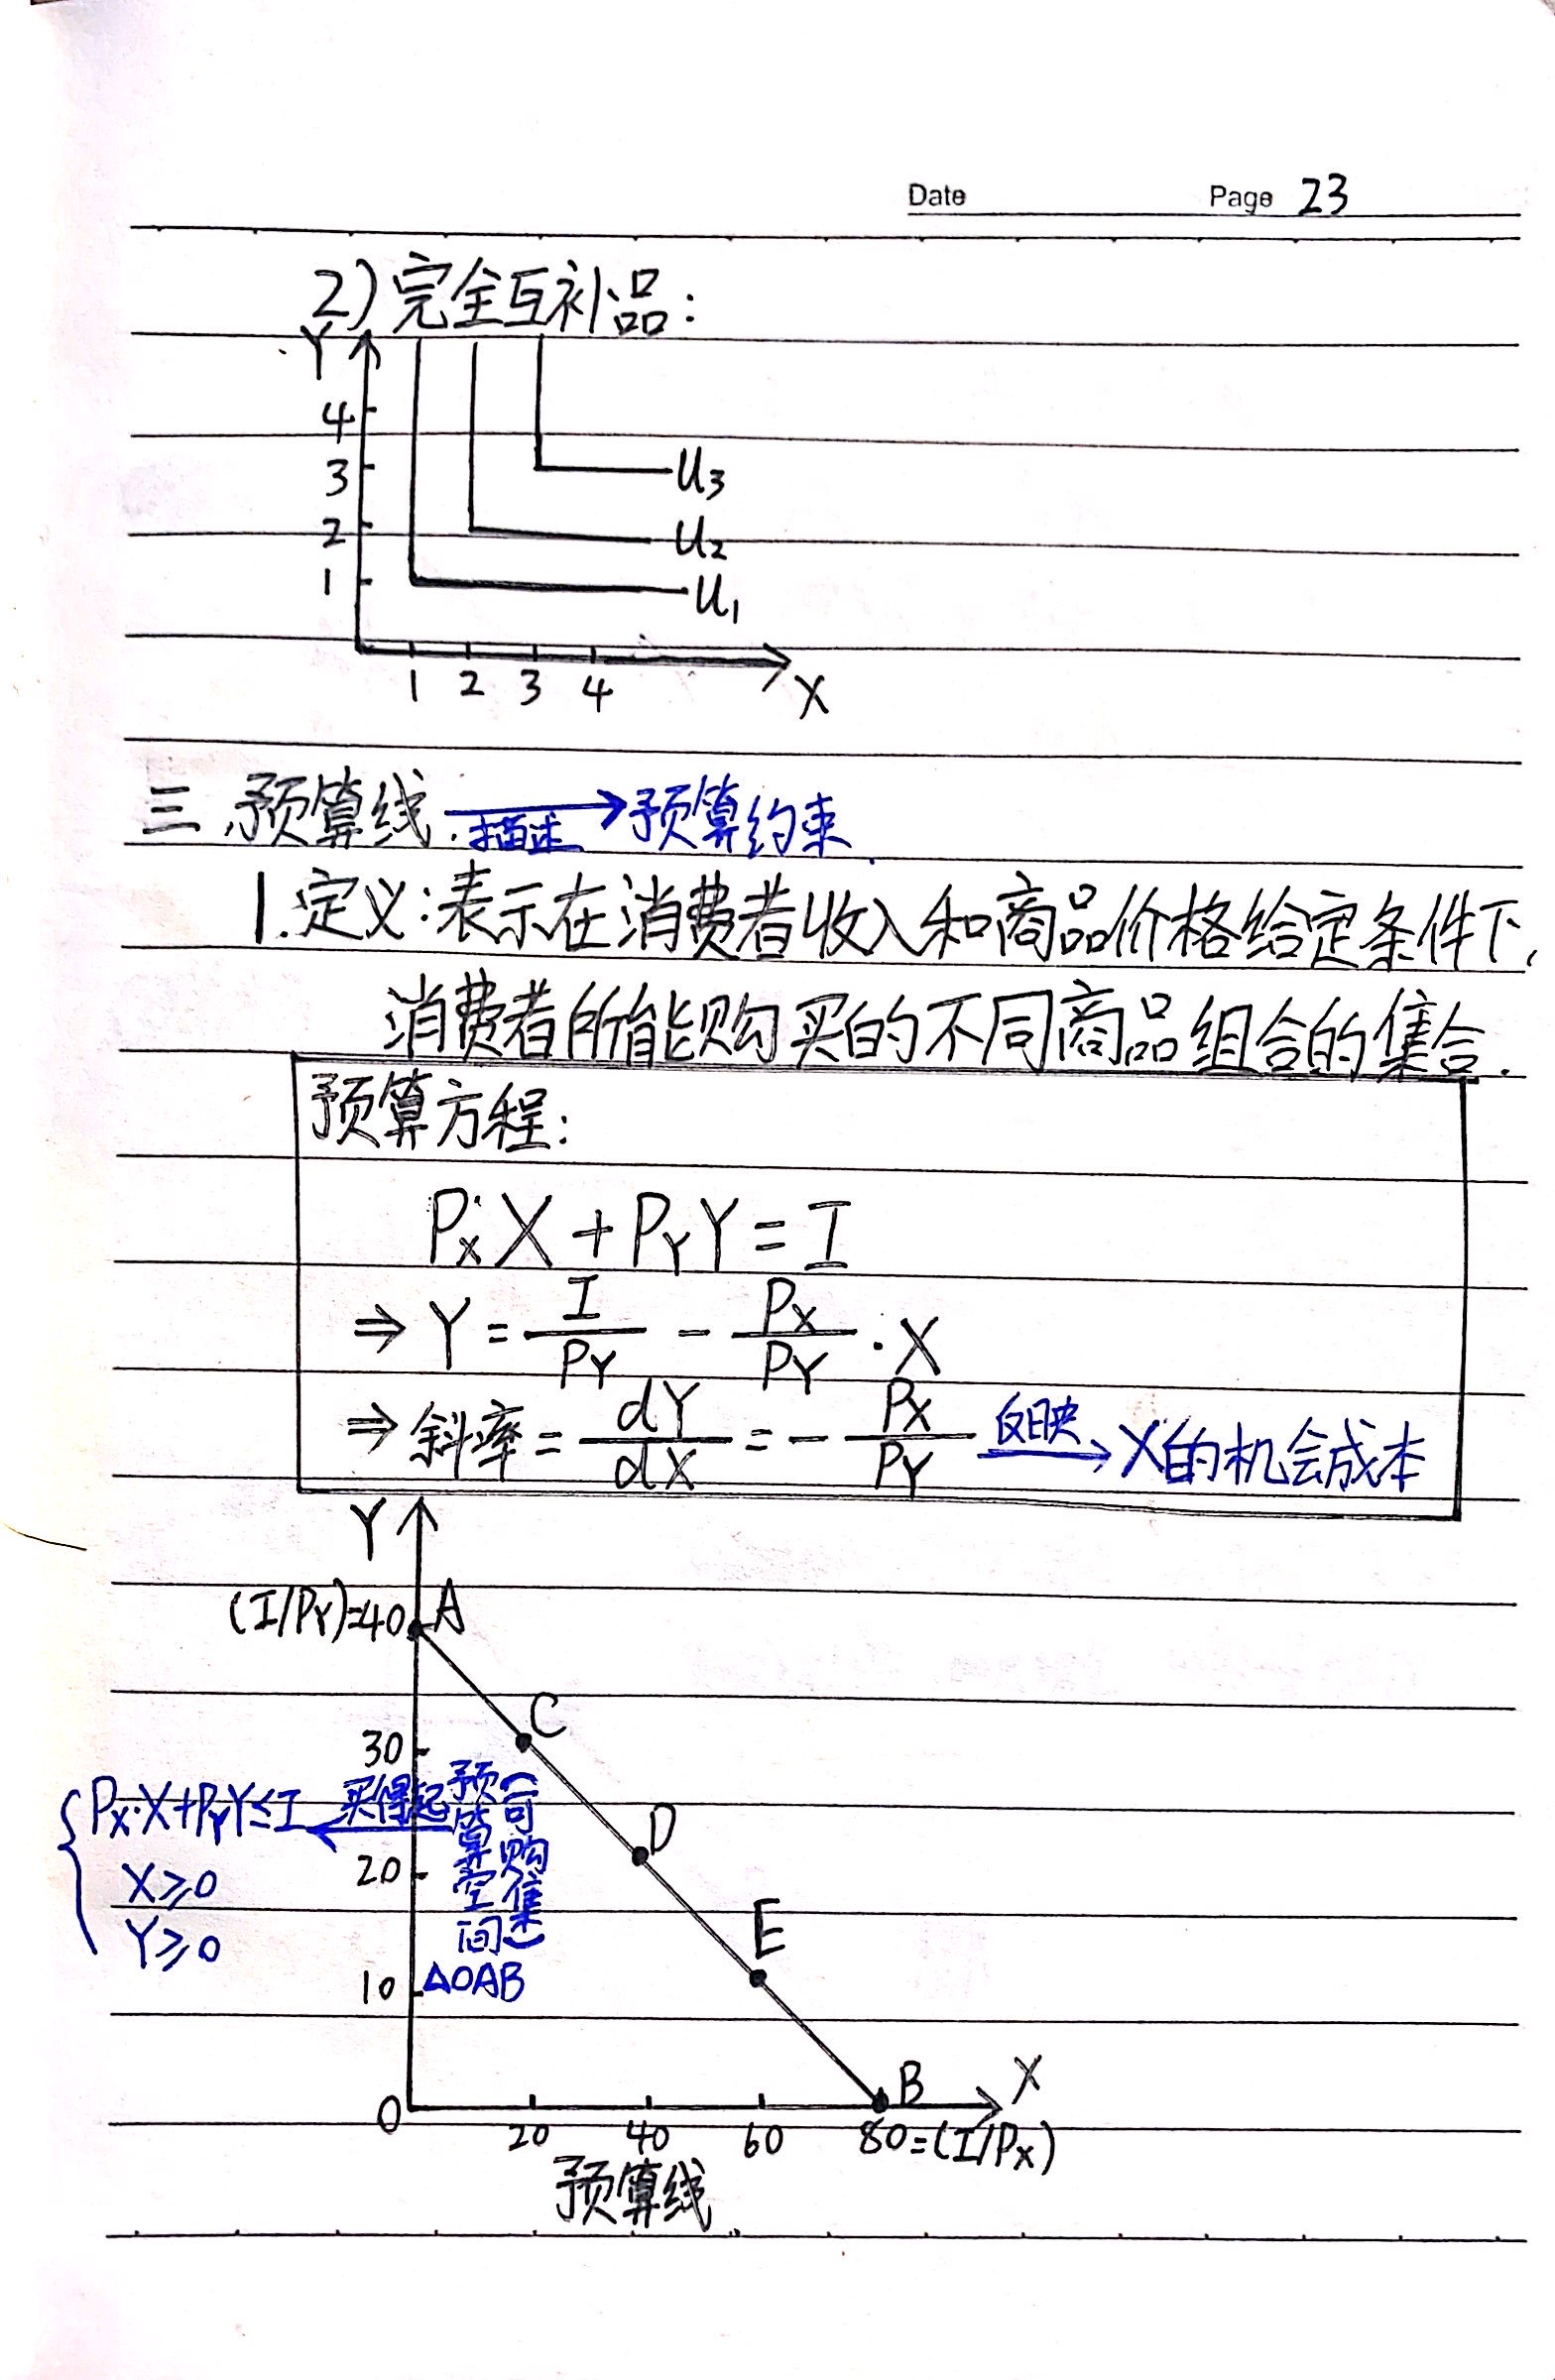 Date Page 23
2)完全互补品:
Y
4
3
2
1
U₃
U₂
U₁
1 2 3 4
X
三.预算线 描述→ 预算约束
1.定义:表示在消费者收入和商品价格给定条件下,
消费者所能购买的不同商品组合的集合.
预算方程:
PₓX + P_Y Y = I
⇒ Y = I/P_Y - Pₓ/P_Y · X
⇒ 斜率 = dY/dX = - Pₓ/P_Y 反映→ X的机会成本
Y
(I/P_Y)=40 A
C
30
Pₓ·X+P_Y Y≤I 买得起 预算空间 (可购集)
X≥0
Y≥0
D
20
E
10 ΔOAB
B X
0 20 40 60 80=(I/Pₓ)
预算线